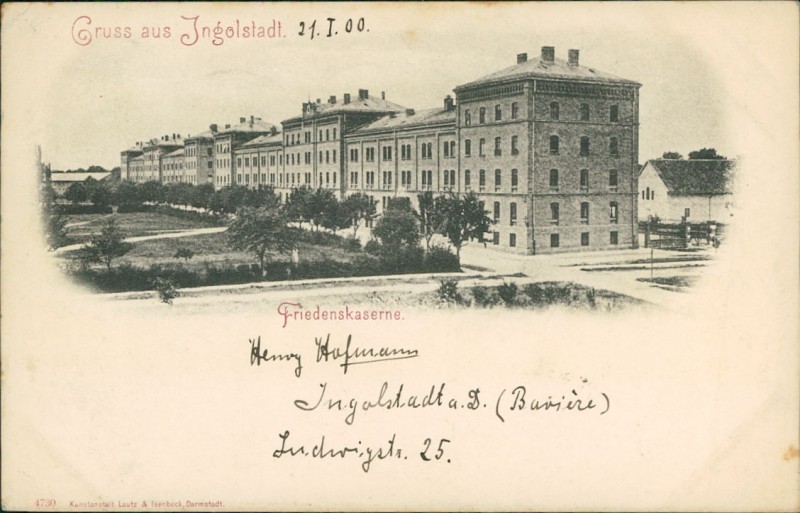 Gruss aus Ingolstadt. 21.I.00.
Friedenskaserne.
Henry Hofmann
Ingolstadt a.D. (Bavière)
Ludwigstr. 25.
4730 Kunstanstalt Lautz & Isenbeck, Darmstadt.